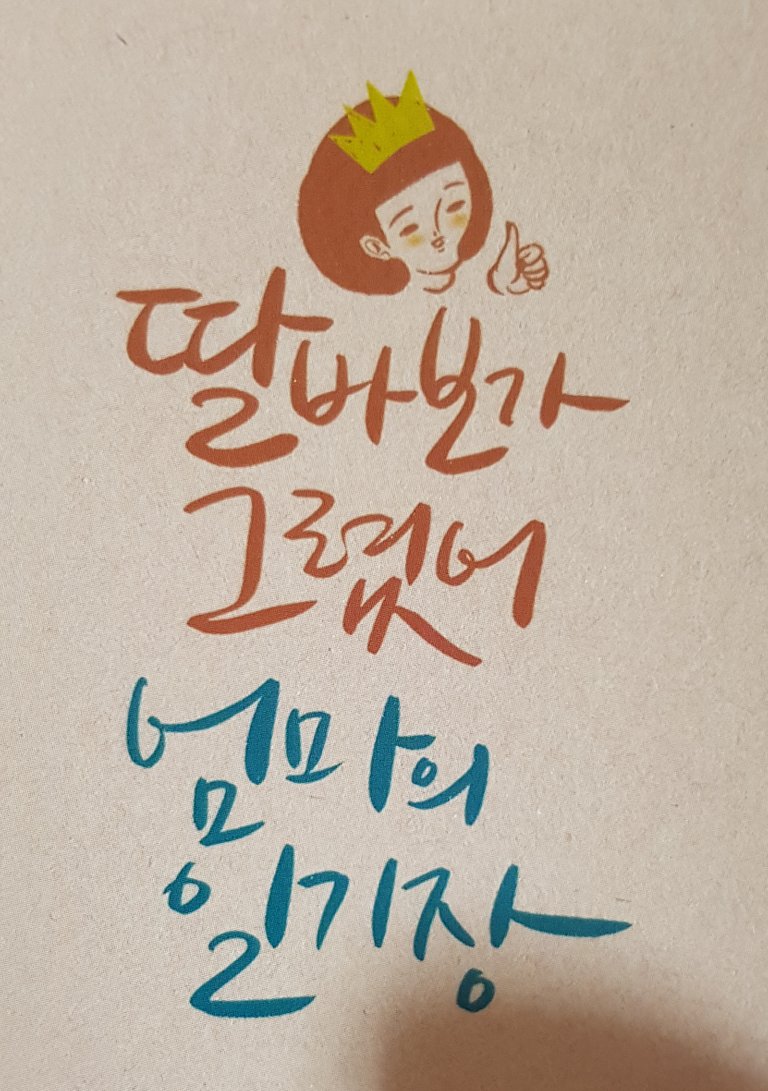 딸바본가
그렸어
엄마의
일기장